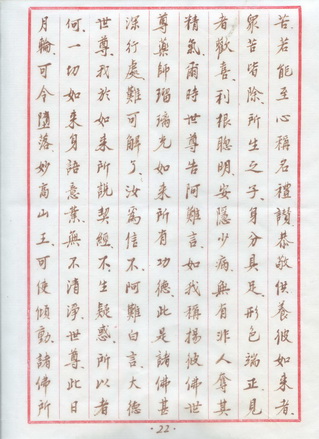 苦若能至心稱名禮讚恭敬供養彼如來者、
眾苦皆除、所生之子、身分具足、形色端正、見
者歡喜、利根聰明、安隱少病、無有非人奪其
精氣、爾時世尊告阿難言、如我稱揚彼佛世
尊藥師瑠璃光如來所有功德、此是諸佛甚
深行處、難可解了、汝為信不、阿難白言、大德
世尊、我於如來所說契經、不生疑惑、所以者
何、一切如來身語意業、無不清淨、世尊、此日
月輪可令墮落、妙高山王、可使傾動、諸佛所
·22·